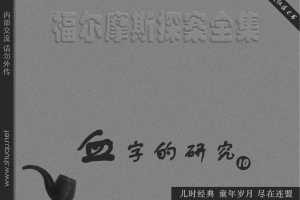 福尔摩斯探案全集
血字的研究
10
内部交流 请勿外传
儿时经典 童年岁月 尽在连盟